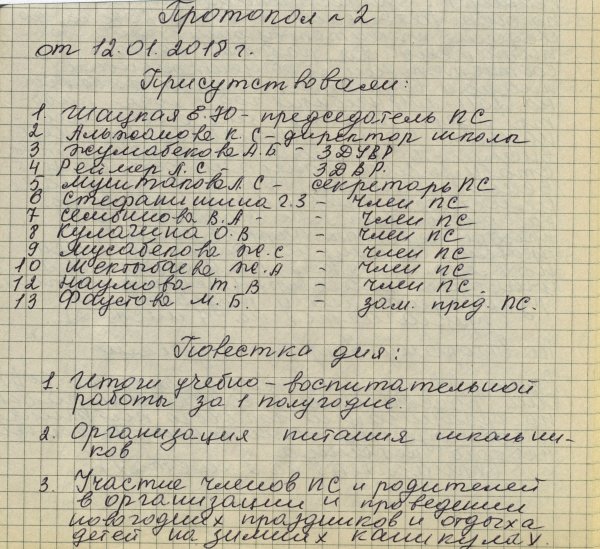 Протокол № 2
от 12.01.2018 г.
Присутствовали:
1. Шацкая Е.Ю - председатель ПС
2 Альжанова К. С - директор школы
3 Жумабекова А.Б. - ЗДУВР
4 Реймер Л. С - ЗДВР.
5 Муштакова Л. С - секретарь ПС
6 Стефанишина Г.З - член ПС
7 Сембинова В.А - член ПС
8 Кулагина О.В - член ПС
9 Мусабекова Ж.С - член ПС
10 Шектыбаева Ж.А - член ПС
12 Наумова Т. В - член ПС.
13 Фаустова М. Б. - зам. пред. ПС.
Повестка дня:
1. Итоги учебно - воспитательной
работы за 1 полугодие.
2. Организация питания школьни-
ков
3. Участие членов ПС и родителей
в организации и проведении
новогодних праздников и отдыха
детей на зимних каникулах.